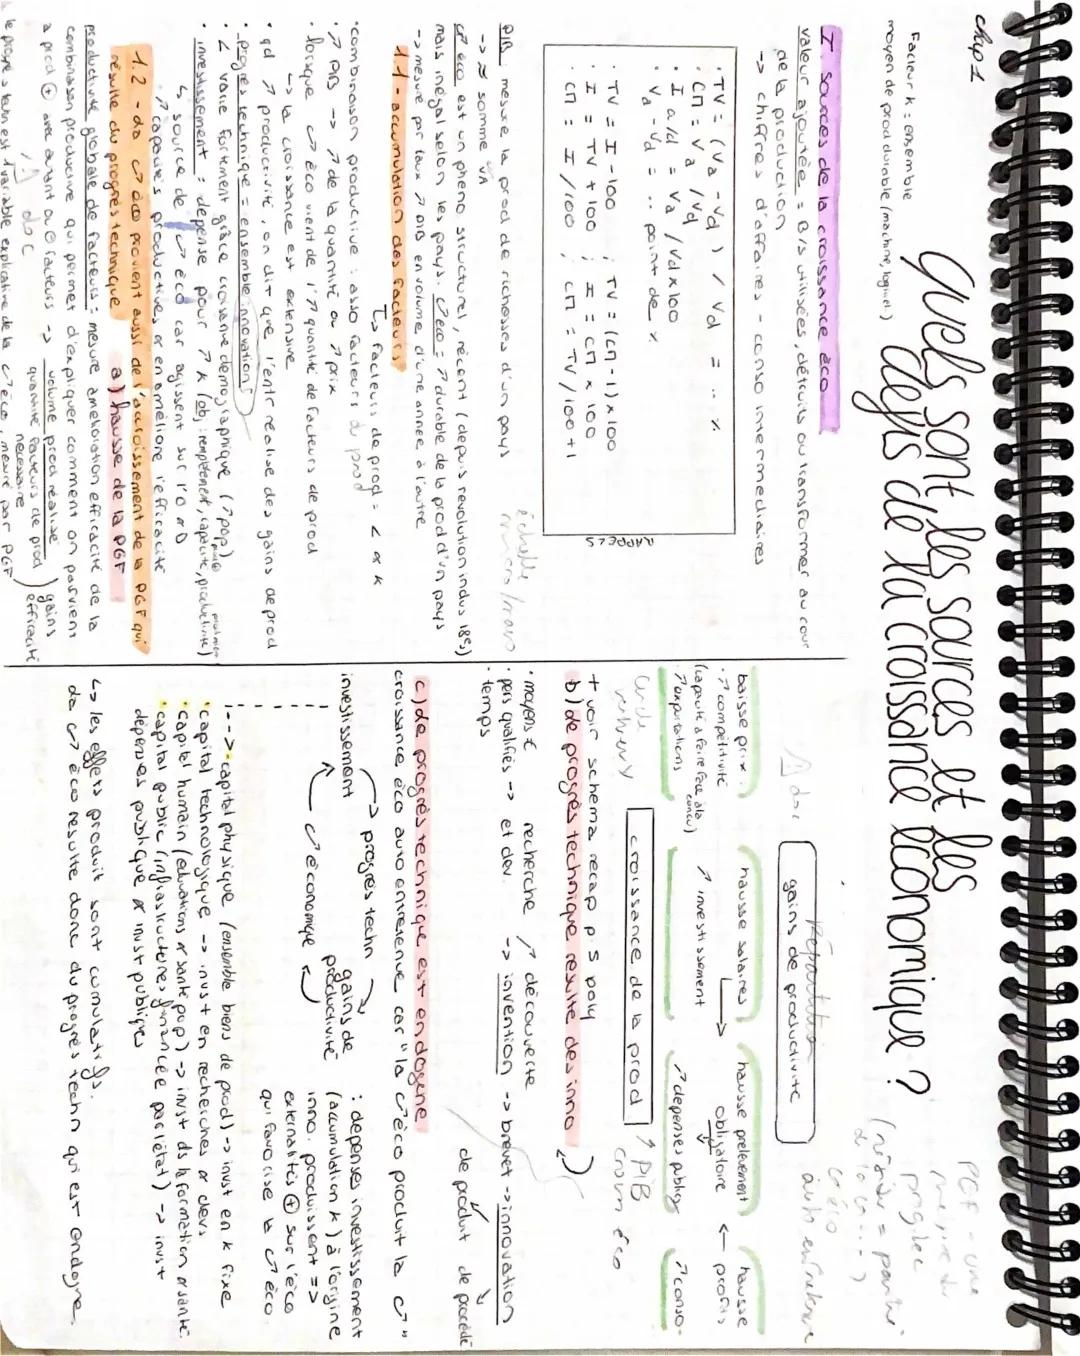 chap 1
Quels sont les sources et les
défis de la croissance économique ?
Facteur k = ensemble
moyen de prod durable (machine, logiciel)
I. sources de la croissance éco
valeur ajoutée = B/S utilisées, détruits ou transformer au cour
de la production
-> chiffre d'affaires - conso intermediaires
RAPPELS
• TV = (Va - Vd) / Vd = .. %
• CM = Va / Vd
• I a/d = Va / Vd x 100
• Va - Vd = .. point de %
• TV = I - 100 ; TV = (CM - 1) x 100
• I = TV + 100 ; I = CM x 100
• CM = I / 100 ; CM = TV / 100 + 1
PIB : mesure la prod de richesses d'un pays
-> ≈ somme VA
échelle
micro / macro
c↗ éco est un pheno structurel, récent (depuis revolution indus 18e s)
mais inégal selon les pays. c↗ éco = ↗ durable de la prod d'un pays
-> mesure par taux ↗ PIB en volume d'une année à l'autre
1.1 - accumulation des facteurs
↳ facteurs de prod = L et K
• combinaison productive : asso facteurs du prod
• ↗ PIB -> ↗ de la quantité ou ↗ prix
• lorsque c↗ éco vient de l'↗ quantité de facteurs de prod
-> la croissance est extensive
• qd ↗ productivité, on dit que l'entr réalise des gains de prod
- progrès technique = ensemble innovations
• L varie fortement grâce croissance démographique (↗ pop)
• investissement = dépense pour ↗ K (obj : remplacement, capacité, productivité)
↳ source de c↗ éco car agissent sur l'O et D
↗ capacités productives et en améliore l'efficacité
1.2 - da c↗ éco provient aussi de l'accroissement de la PGF qui
résulte du progrès technique
a) hausse de la PGF
productivité globale de facteurs : mesure amélioration efficacité de la
combinaison productive qui permet d'expliquer comment on parvient
a prod ⊕ avec autant de facteurs -> volume prod réalisé
quantité facteurs de prod
nécessaire
) gains
efficacité
⚠ doc
le progrès techn est 1 variable explicative de la c↗ éco, mesuré par PGF
PGF - une
mesure du
progrès
⚠ doc
Répartition
gains de productivité
auto entretenue
baisse prix :
• ↗ compétitivité
(capacité à faire face à la
concu)
• ↗ exportations
hausse salaires
↗ investissement
hausse prélèvement
obligatoire
↗ dépenses publiq
← hausse
profits
↗ conso.
croissance de la prod
↗ PIB
croiss éco
+ voir schema recap p.5 poly
b) de progrès technique résulte des inno
• moyens €
• pers qualifiés -> recherche et dev.
• temps
↗ découverte
-> invention -> brevet -> innovation
de produit
de procédé
c) de progrès technique est endogene
croissance éco auto entretenue car "la c↗ éco produit la c↗"
investissement
progrès techn
gains de
productivité
c↗ économique
: dépenses investissement
(accumulation k) à l'origine
inno. produissent =>
externalités ⊕ sur l'éco
qui favorise la c↗ éco
--> • capital physique (ensemble biens de prod) -> invst en k fixe
• capital technologique -> invst en recherches et devs
• capital humain (educations et santé pop) -> invst ds la formation et santé.
• capital public (infrastructures financée par l'état) -> invst
dépenses publique et invst publiques
↳ les effets produit sont cumulatifs.
da c↗ éco resulte donc du progrès techn qui est endogène